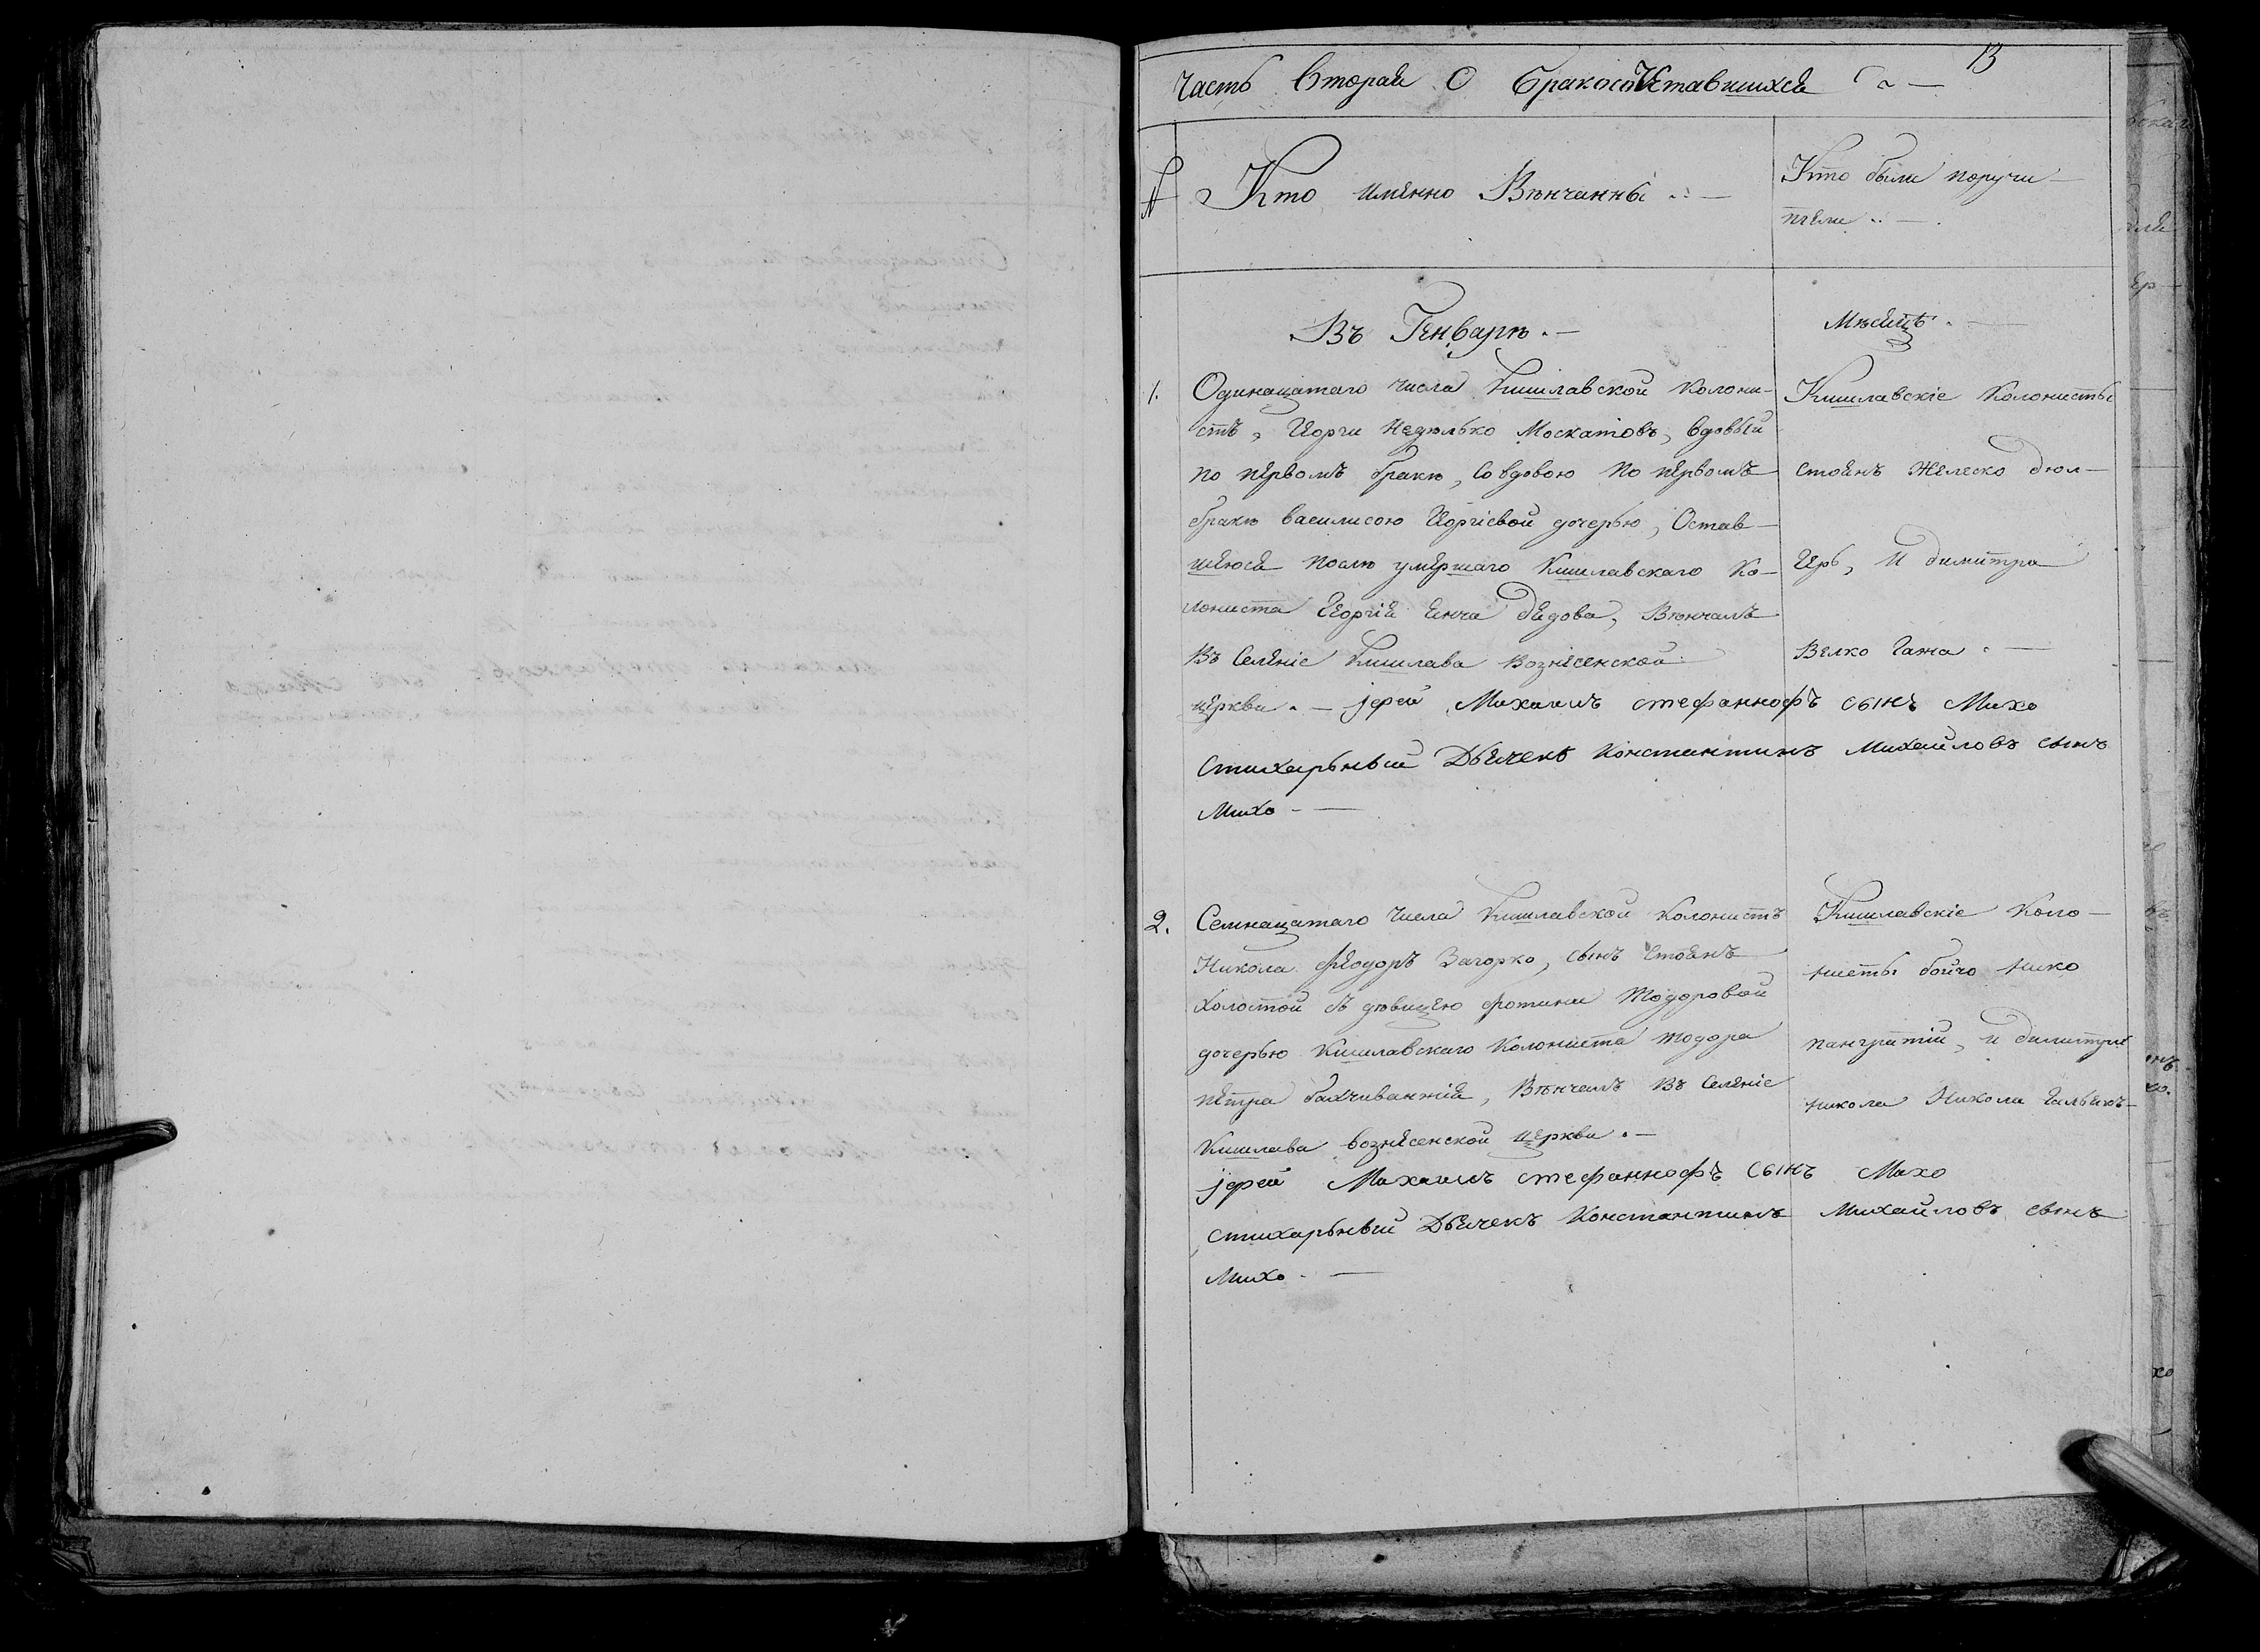 13
Часть Вторая О Бракосочетавшихся
№ Кто имянно Вѣнчанны
Кто были поручи-
тели
Въ Генварѣ. Мѣсяцѣ.
1. Одинацатаго числа Кишлавской Колони-
стъ, Георги Недѣлько Москатовъ, вдовый
по первомъ бракѣ, со вдовою по первомъ
бракѣ василисою Георгіевой дочерью, Остав-
шеюся послѣ умершаго Кишлавскаго Ко-
лониста Георгія Енча дѣдова, Вѣнчалъ
Въ Селеніе Кишлава Вознесенской
церкви. — јерей Михаилъ стефаннофъ сынъ Михо
стихарьный Дьячекъ Константинъ Михайловъ сынъ
Михо
Кишлавскіе Колонисты
стоянъ Желеско дюл-
герь, И димитра
Велко Гана
2. Семнацатаго числа Кишлавской Колонистъ
Никола Феодоръ Загорко, сынъ Стоянъ
Холостой съ дѣвицею фотини Тодоровой
дочерью Кишлавскаго Колониста Тодора
петра бахчиванжія, Вѣнчалъ Въ Селеніе
Кишлава вознесенской церкви.
јерей Михаилъ стефаннофъ сынъ Михо
стихарьный Дьячекъ Константинъ Михайловъ сынъ
Михо
Кишлавскіе Коло-
нисты бойчо нико
панкратіи, и димитри
никола Николи